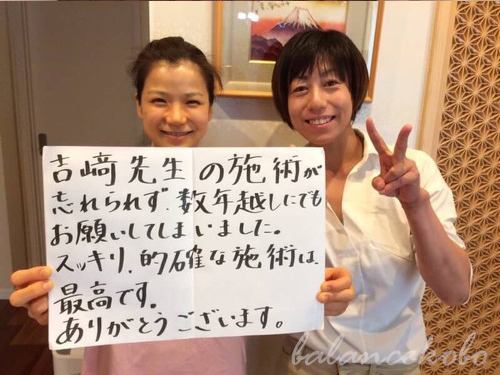 吉﨑先生の施術が
忘れられず、数年越しにでも
お願いしてしまいました。
スッキリ、的確な施術は、
最高です。
ありがとうございます。
balancekobo